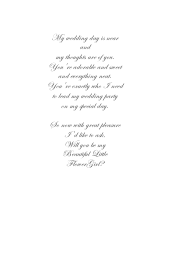 My wedding day is near
and
my thoughts are of you.
You're adorable and sweet
and everything neat.
You're exactly who I need
to lead my wedding party
on my special day.
So now with great pleasure
I'd like to ask,
Will you be my
Beautiful Little
Flower Girl?